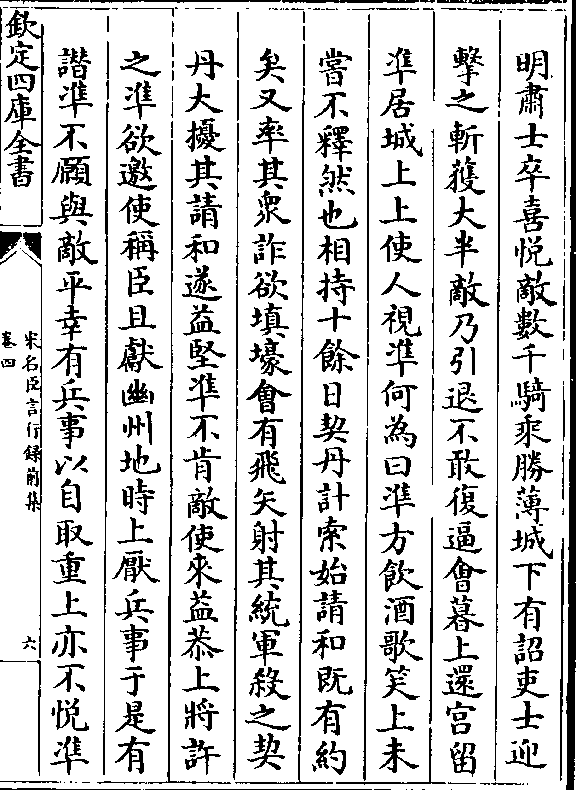 明肅士卒喜悅敵數千騎乘勝薄城下有詔吏士迎
擊之斬獲大半敵乃引退不敢復逼會暮上還宮留
準居城上上使人視準何為曰準方飲酒歌笑上未
嘗不釋然也相持十餘日契丹計索始請和既有約
矣又率其衆詐欲填壕會有飛矢射其統軍殺之契
丹大擾其請和遂益堅準不肯敵使來益恭上將許
之準欲邀使稱臣且獻幽州地時上厭兵事于是有
譖準不願與敵平幸有兵事以自取重上亦不悅準
欽定四庫全書
宋名臣言行錄前集
卷四
六